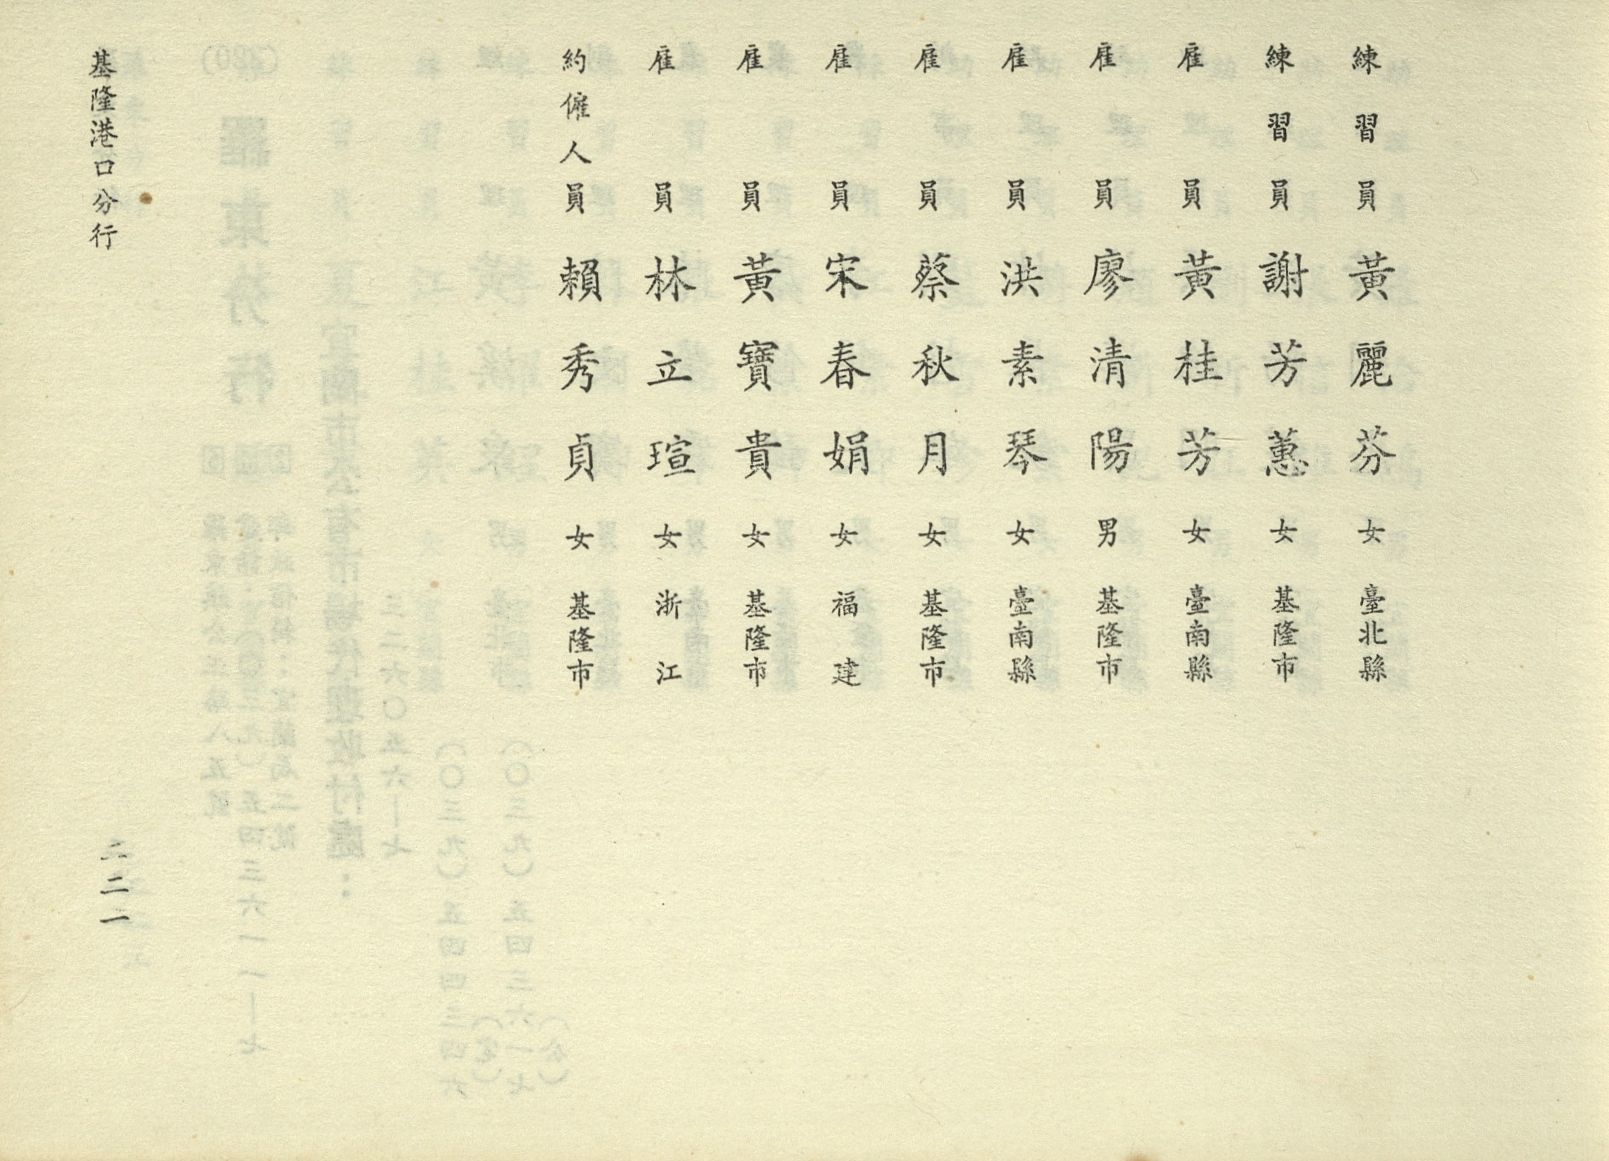 練習員 黃麗芬 女 臺北縣
練習員 謝芳蕙 女 基隆市
雇員 黃桂芳 女 臺南縣
雇員 廖清陽 男 基隆市
雇員 洪素琴 女 臺南縣
雇員 蔡秋月 女 基隆市
雇員 宋春娟 女 福建
雇員 黃寶貴 女 基隆市
雇員 林立瑄 女 浙江
約僱人員 賴秀貞 女 基隆市
基隆港口分行
二二一